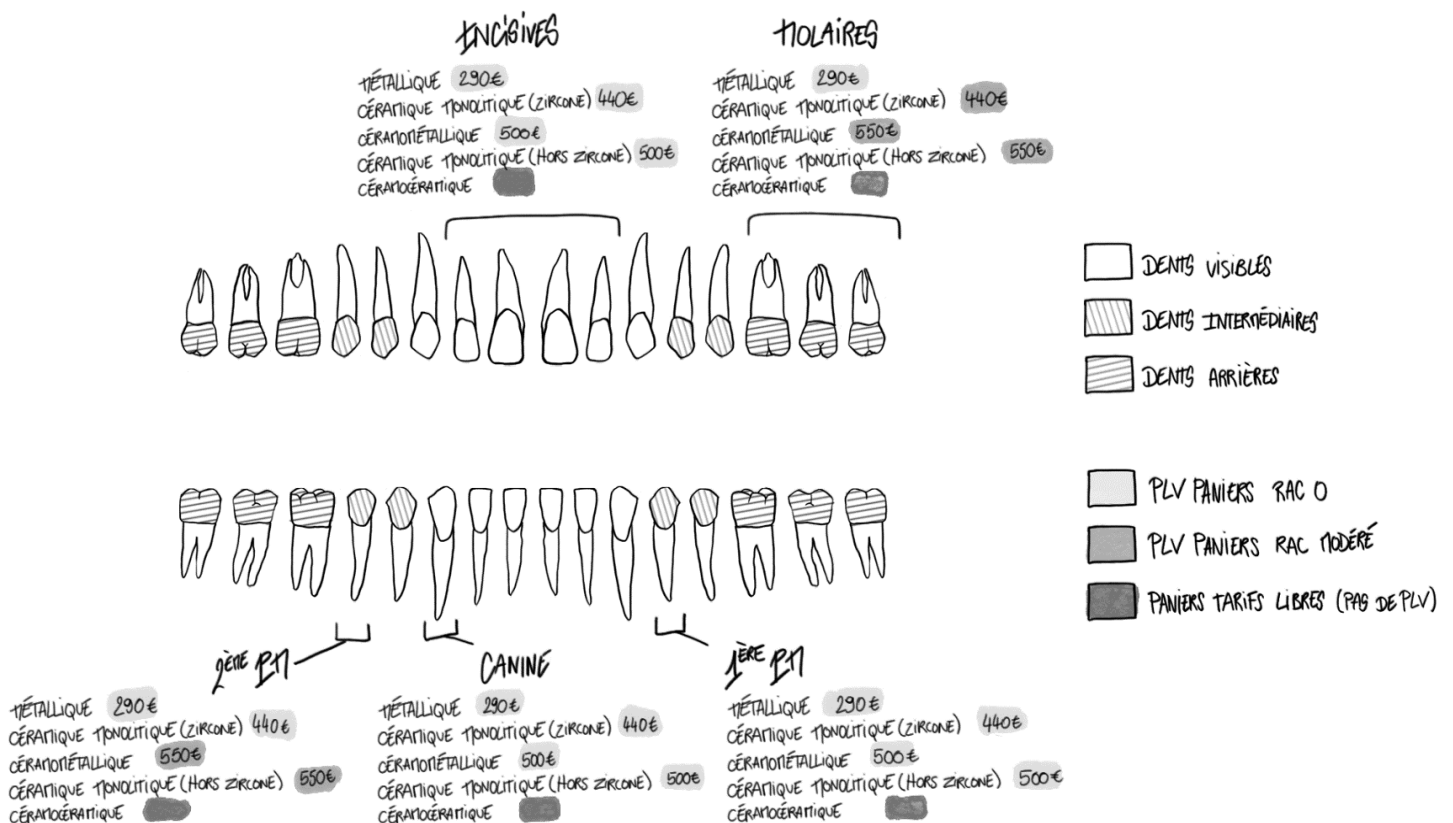 INCISIVES
MÉTALLIQUE 290€
CÉRAMIQUE MONOLITIQUE (ZIRCONE) 440€
CÉRAMOMÉTALLIQUE 500€
CÉRAMIQUE MONOLITIQUE (HORS ZIRCONE) 500€
CÉRAMOCÉRAMIQUE
MOLAIRES
MÉTALLIQUE 290€
CÉRAMIQUE MONOLITIQUE (ZIRCONE) 440€
CÉRAMOMÉTALLIQUE 550€
CÉRAMIQUE MONOLITIQUE (HORS ZIRCONE) 550€
CÉRAMOCÉRAMIQUE
DENTS VISIBLES
DENTS INTERMÉDIAIRES
DENTS ARRIÈRES
PLV PANIERS RAC 0
PLV PANIERS RAC MODÉRÉ
PANIERS TARIFS LIBRES (PAS DE PLV)
2ÈME PM
MÉTALLIQUE 290€
CÉRAMIQUE MONOLITIQUE (ZIRCONE) 440€
CÉRAMOMÉTALLIQUE 550€
CÉRAMIQUE MONOLITIQUE (HORS ZIRCONE) 550€
CÉRAMOCÉRAMIQUE
CANINE
MÉTALLIQUE 290€
CÉRAMIQUE MONOLITIQUE (ZIRCONE) 440€
CÉRAMOMÉTALLIQUE 500€
CÉRAMIQUE MONOLITIQUE (HORS ZIRCONE) 500€
CÉRAMOCÉRAMIQUE
1ÈRE PM
MÉTALLIQUE 290€
CÉRAMIQUE MONOLITIQUE (ZIRCONE) 440€
CÉRAMOMÉTALLIQUE 500€
CÉRAMIQUE MONOLITIQUE (HORS ZIRCONE) 500€
CÉRAMOCÉRAMIQUE